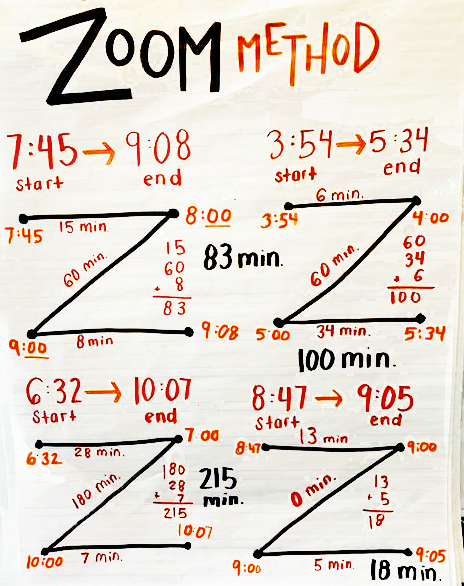 ZOOM METHOD
7:45 → 9:08
start end
7:45 15 min 8:00
60 min.
15
60
+ 8
83
83 min.
9:00 8 min 9:08
3:54 → 5:34
start end
3:54 6 min. 4:00
60 min.
60
34
+ 6
100
5:00 34 min. 5:34
100 min.
6:32 → 10:07
start end
6:32 28 min. 7:00
180 min.
180
28
+ 7
215
215 min.
10:00 7 min. 10:07
8:47 → 9:05
start end
8:47 13 min 9:00
0 min.
13
+ 5
18
9:00 5 min. 9:05
18 min.